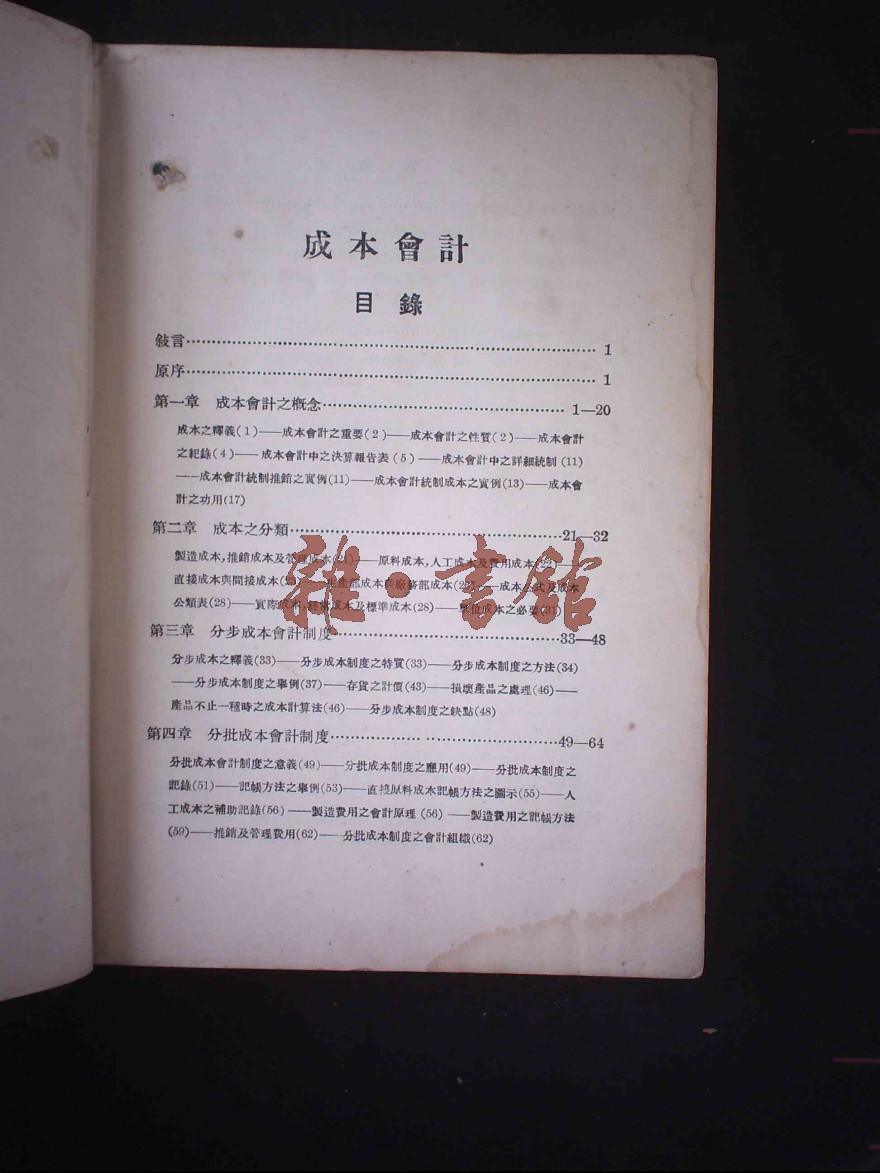 成本會計
目錄
敍言………………………………………………………… 1
原序………………………………………………………… 1
第一章 成本會計之概念………………………………… 1—20
成本之釋義(1)——成本會計之重要(2)——成本會計之性質(2)——成本會計
之紀錄(4)——成本會計中之決算報告表(5)——成本會計中之詳細統制(11)
——成本會計統制推銷之實例(11)——成本會計統制成本之實例(13)——成本會
計之功用(17)
第二章 成本之分類………………………………………21—32
製造成本,推銷成本及管理成本(21)——原料成本,人工成本及費用成本(22)——
直接成本與間接成本(23)——生產部成本與廠務部成本(23)——成本公式及成本
分類表(28)——實際成本,經常成本及標準成本(28)——單位成本之必要(31)
第三章 分步成本會計制度………………………………33—48
分步成本之釋義(33)——分步成本制度之特質(33)——分步成本制度之方法(34)
——分步成本制度之舉例(37)——存貨之計價(43)——損壞產品之處理(46)——
產品不止一種時之成本計算法(46)——分步成本制度之缺點(48)
第四章 分批成本會計制度………………………………49—64
分批成本會計制度之意義(49)——分批成本制度之應用(49)——分批成本制度之
記錄(51)——記帳方法之舉例(53)——直接原料成本記帳方法之圖示(55)——人
工成本之補助記錄(56)——製造費用之會計原理(56)——製造費用之記帳方法
(59)——推銷及管理費用(62)——分批成本制度之會計組織(62)
雜·書館